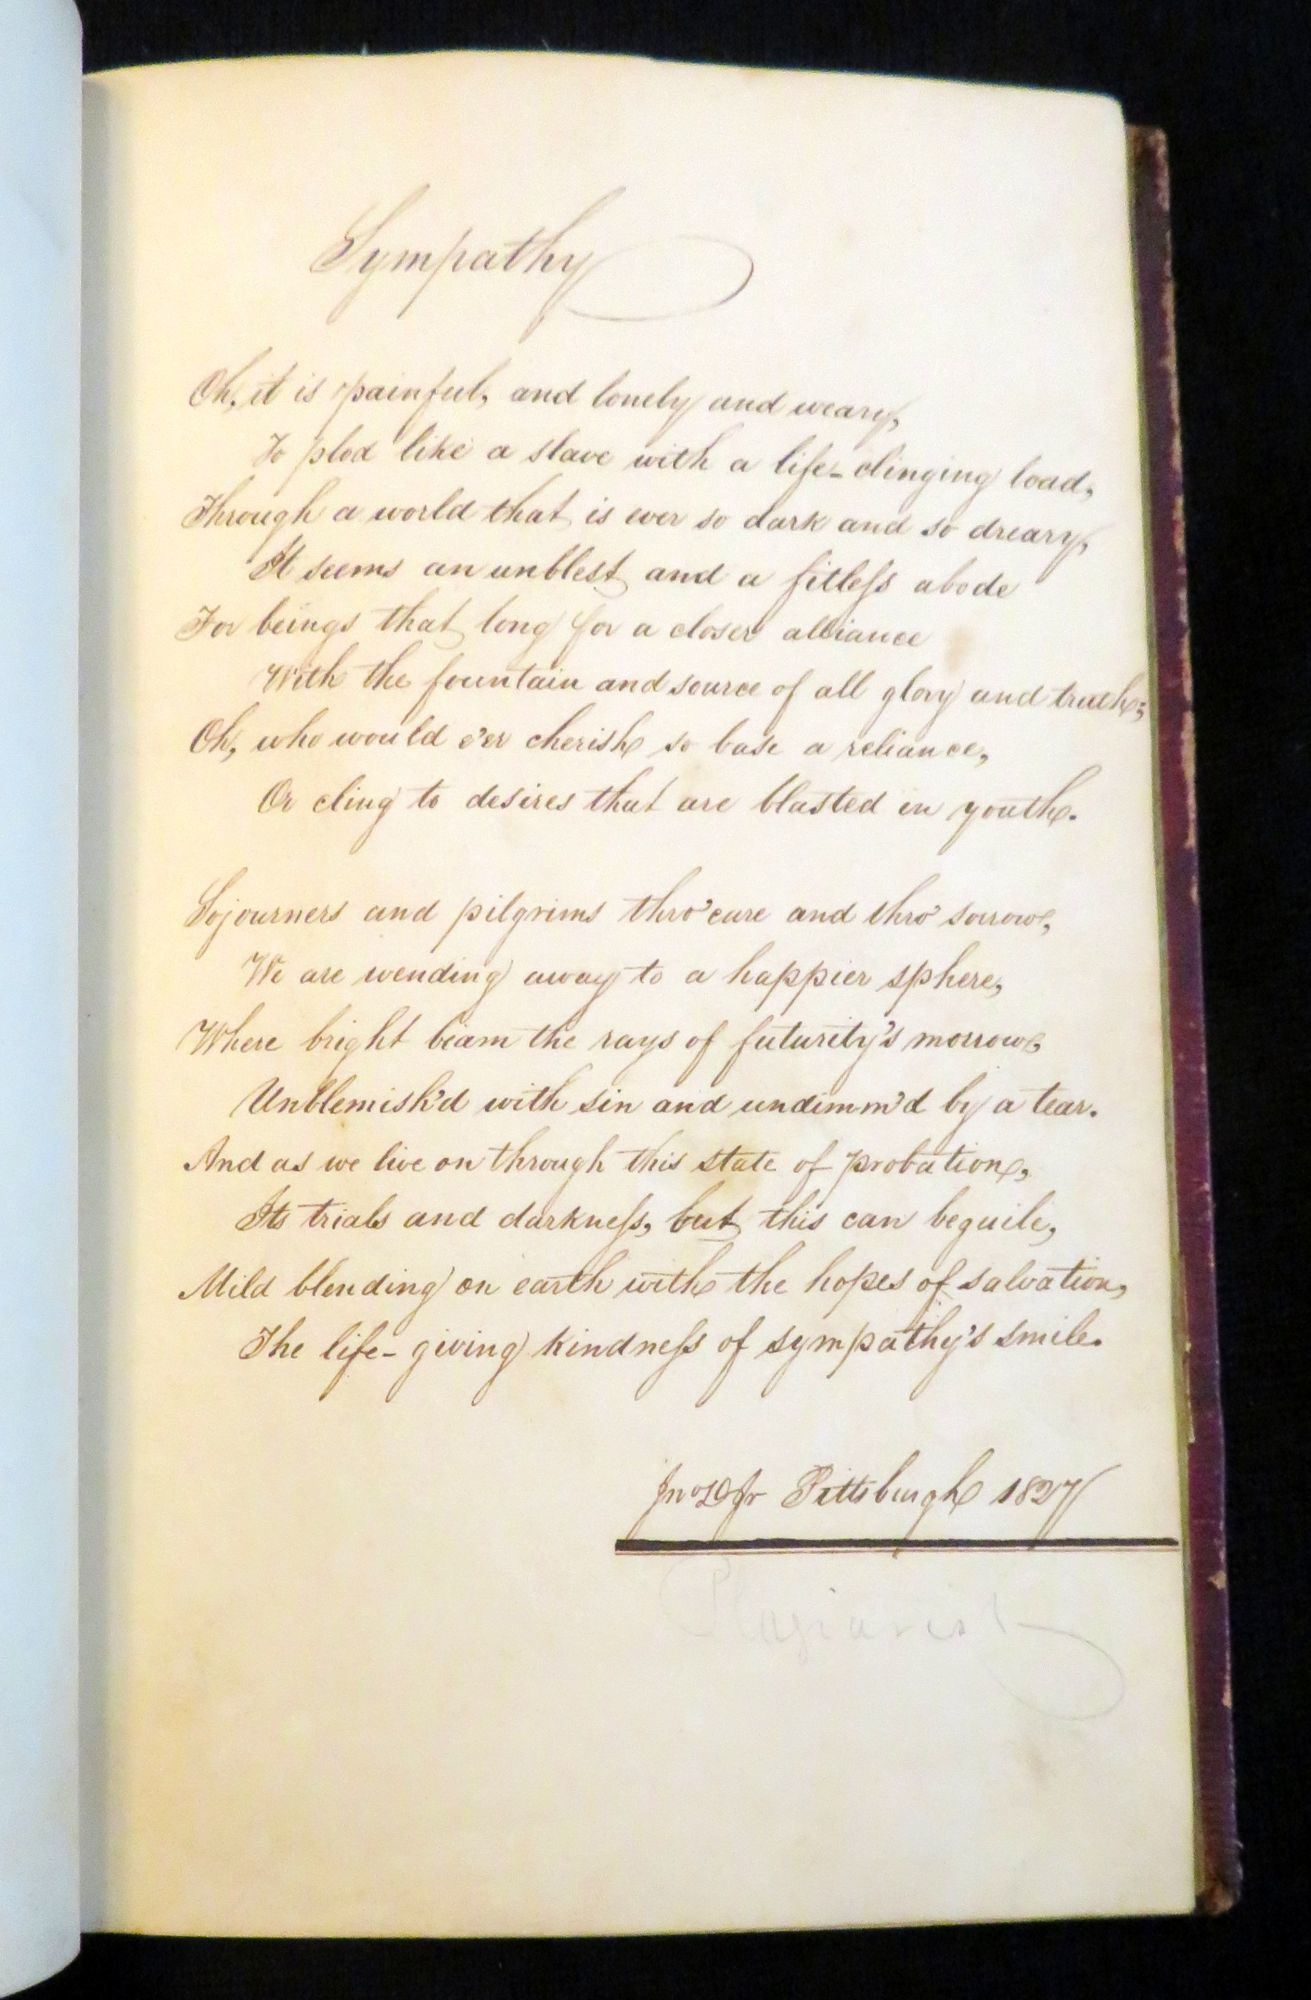 Sympathy
Oh, it is painful, and lonely and weary,
To plod like a slave with a life-clinging load,
Through a world that is ever so dark and so dreary,
It seems an unblest and a fitleſs abode
For beings that long for a closer alliance
With the fountain and source of all glory and truth;
Oh, who would e'er cherish so base a reliance,
Or cling to desires that are blasted in youth.
Sojourners and pilgrims thro' care and thro' sorrow,
We are wending away to a happier sphere,
Where bright beam the rays of futurity's morrow,
Unblemish'd with sin and undimm'd by a tear.
And as we live on through this state of probation,
Its trials and darkneſs, but this can beguile,
Mild blending on earth with the hopes of salvation,
The life-giving kindneſs of sympathy's smile.
Pittsburgh 1827
Plagiarist